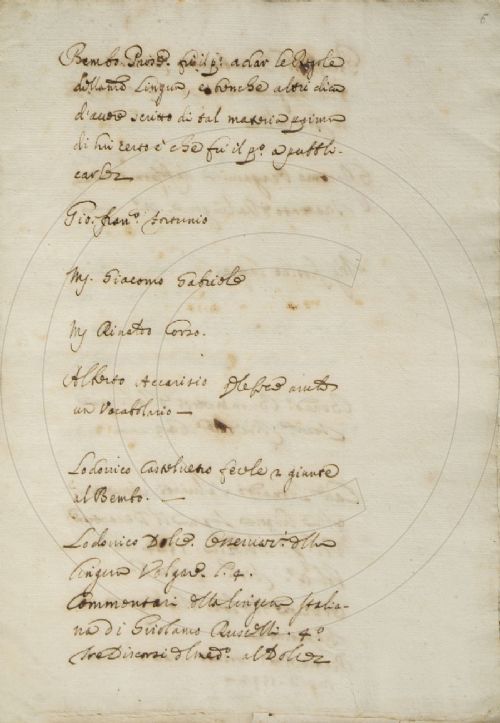 6
Bembo Prose. fù il p.º a dar le Regole
della nra Lingua, e benche altri dica
d'avere scritto di tal materia prima
di lui certo è che fù il p.º a pubbli-
carle
Gio. Fran.º Fortunio
M. Giacomo Gabriele
M. Rinaldo Corso.
Alberto Accarisio
un Vocabolario —
Lodovico Castelvetro fece le giunte
al Bembo. —
Lodovico Dolce. Osservaz.i della
lingua Volgare. l. 4.
Commentari della lingua Italia-
na di Girolamo Ruscelli. 4.º
tre Discorsi del med.º al Dolce